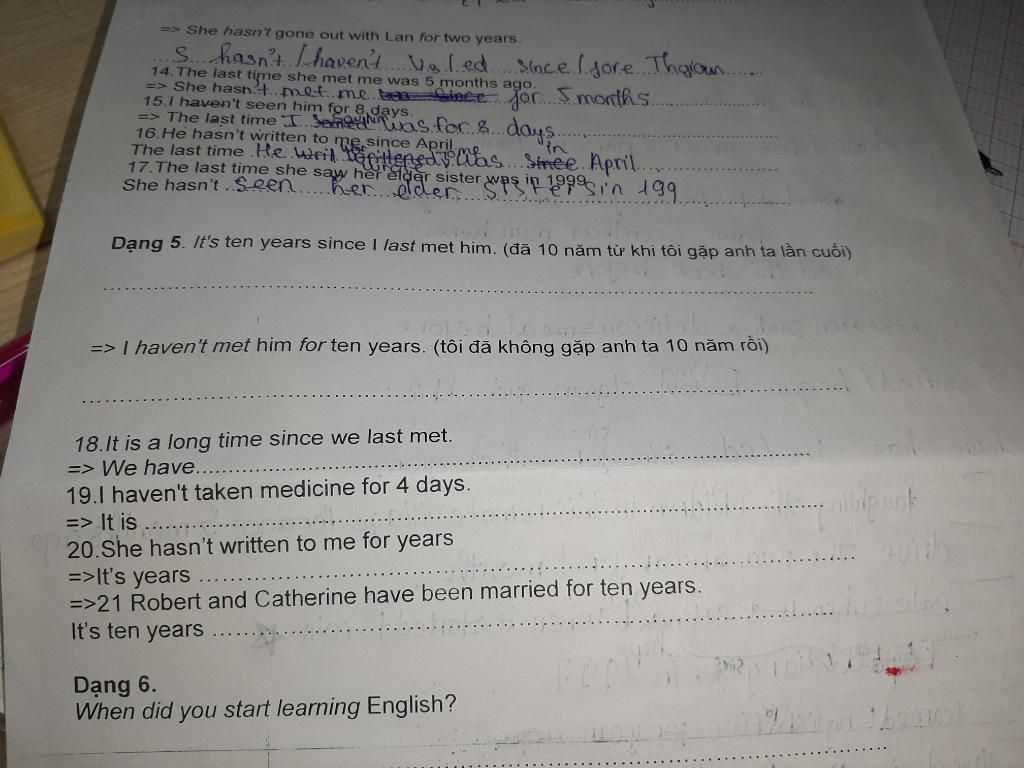 => She hasn't gone out with Lan for two years.
S hasn't / haven't V3 / ed since / fore Thgian
14.The last time she met me was 5 months ago.
=> She hasn't met me for 5 months
15.I haven't seen him for 8 days.
=> The last time I was for 8 days
16.He hasn't written to me since April.
The last time He me was in April
17.The last time she saw her elder sister was in 1999.
She hasn't seen her elder sister sin 199
Dạng 5. It's ten years since I last met him. (đã 10 năm từ khi tôi gặp anh ta lần cuối)
=> I haven't met him for ten years. (tôi đã không gặp anh ta 10 năm rồi)
18.It is a long time since we last met.
=> We have
19.I haven't taken medicine for 4 days.
=> It is
20.She hasn't written to me for years
=>It's years
=>21 Robert and Catherine have been married for ten years.
It's ten years
Dạng 6.
When did you start learning English?